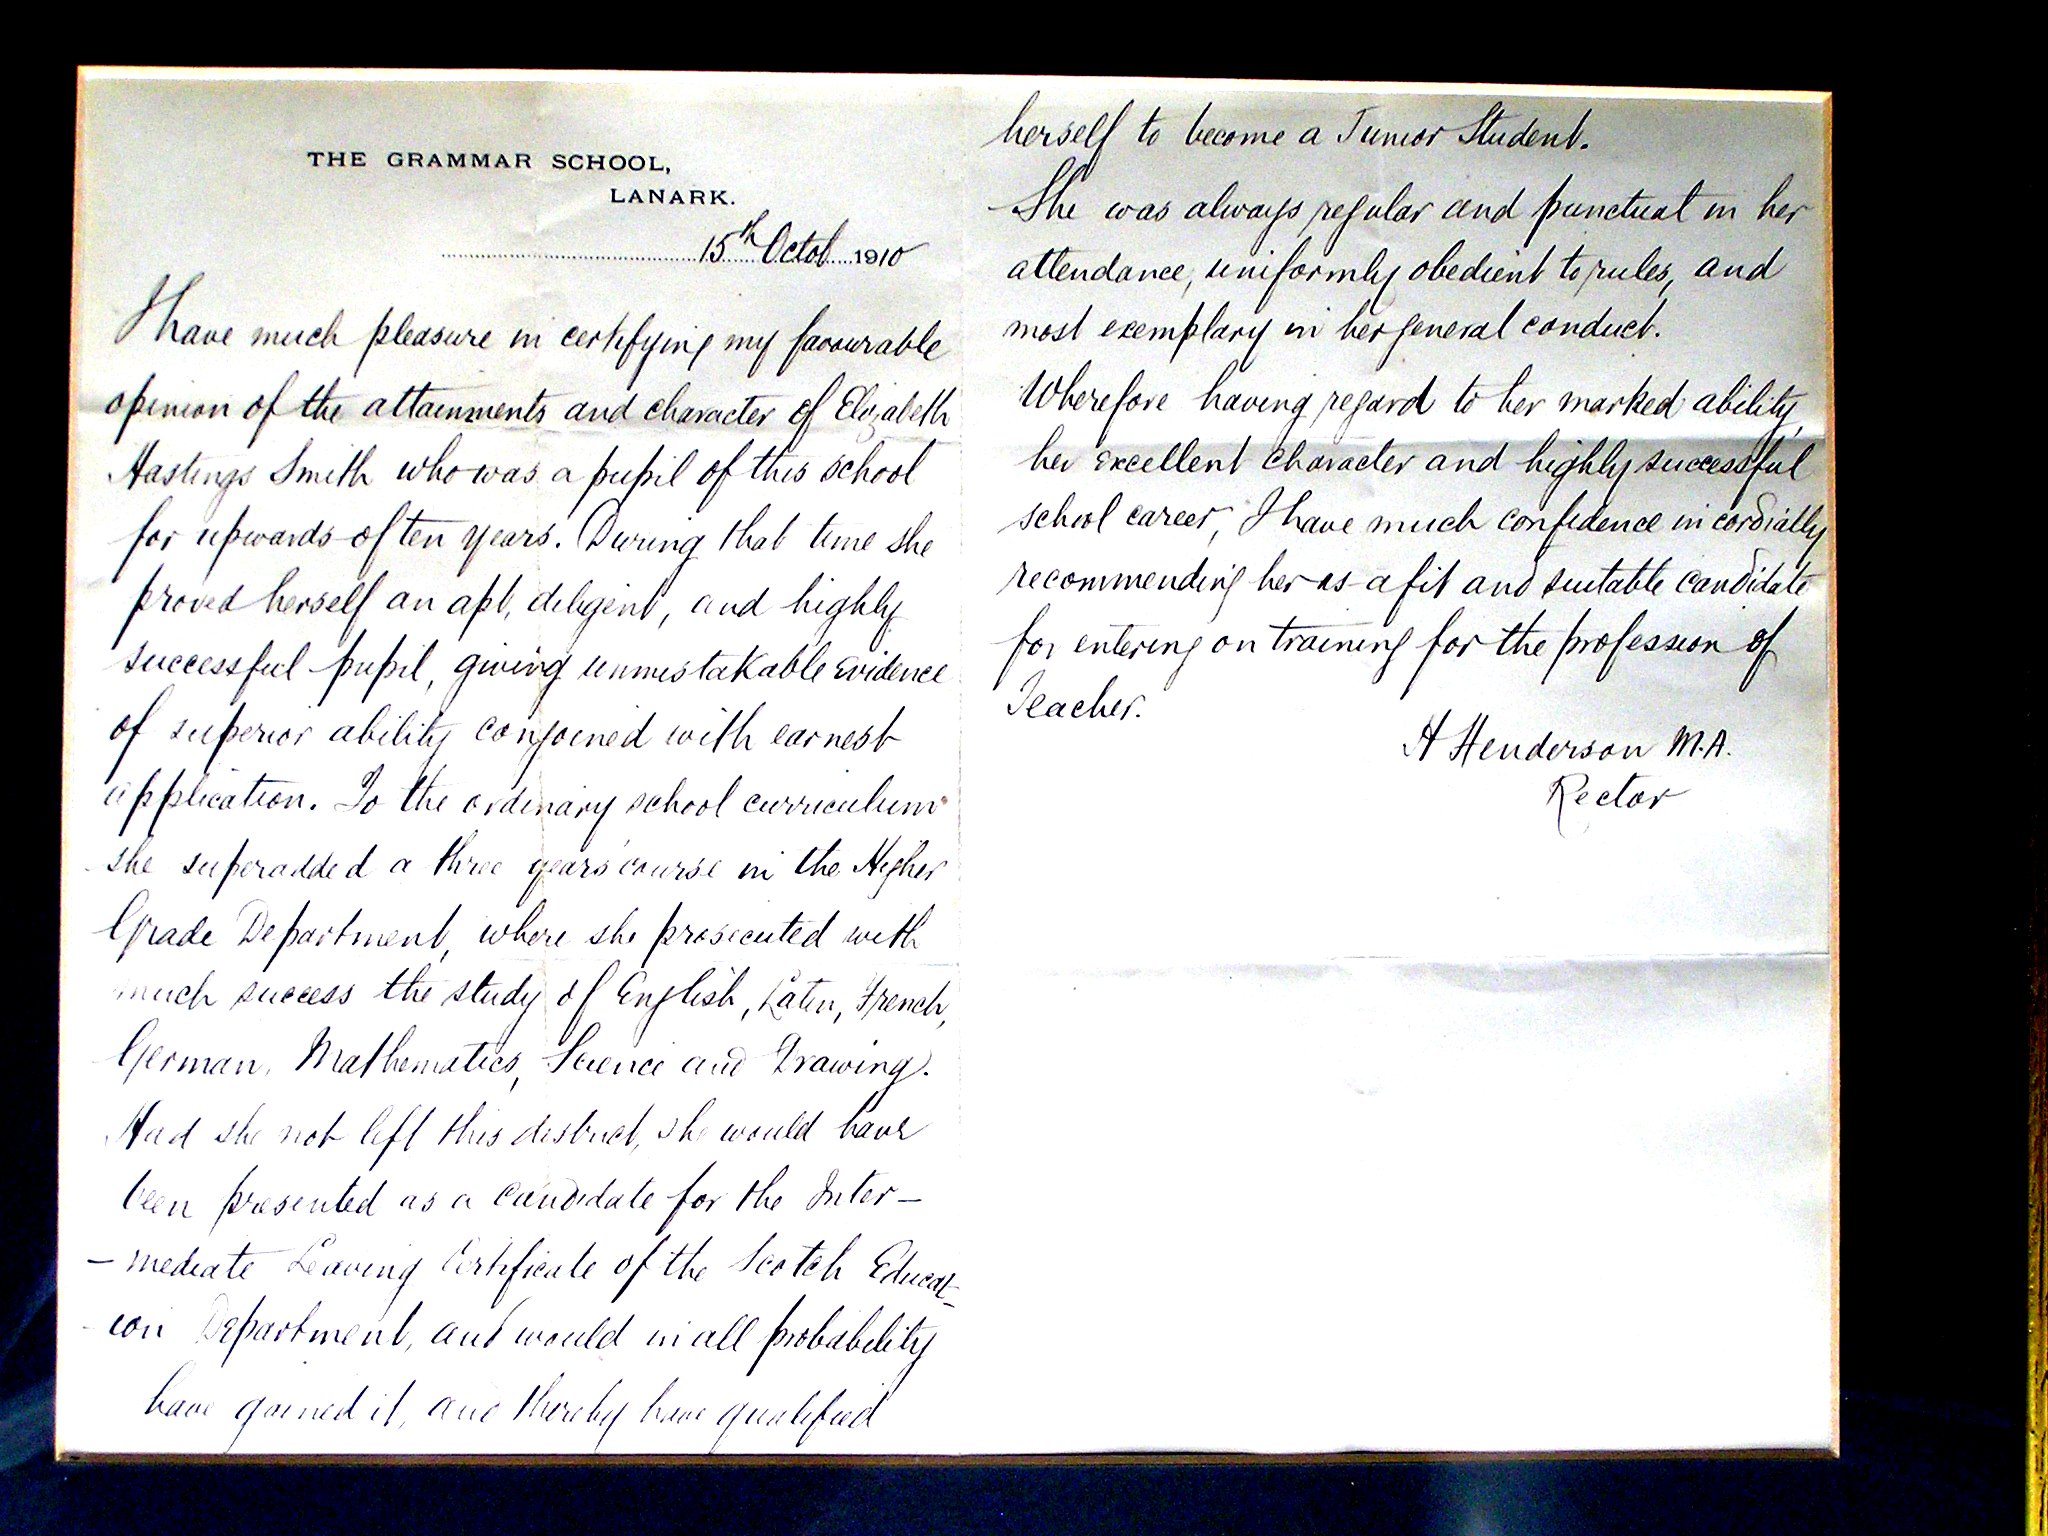 THE GRAMMAR SCHOOL,
LANARK.
15th Octob 1910
I have much pleasure in certifying my favourable
opinion of the attainments and character of Elizabeth
Hastings Smith who was a pupil of this school
for upwards of ten years. During that time she
proved herself an apt, diligent, and highly
successful pupil, giving unmistakable evidence
of superior ability conjoined with earnest
application. To the ordinary school curriculum
she superadded a three years' course in the Higher
Grade Department, where she prosecuted with
much success the study of English, Latin, French,
German, Mathematics, Science and Drawing.
Had she not left this district, she would have
been presented as a candidate for the Inter-
-mediate Leaving Certificate of the Scotch Educat-
-ion Department, and would in all probability
have gained it, and thereby have qualified
herself to become a Junior Student.
She was always regular and punctual in her
attendance, uniformly obedient to rules, and
most exemplary in her general conduct.
Wherefore having regard to her marked ability,
her excellent character and highly successful
school career, I have much confidence in cordially
recommending her as a fit and suitable candidate
for entering on training for the profession of
Teacher.
A Henderson M.A.
Rector